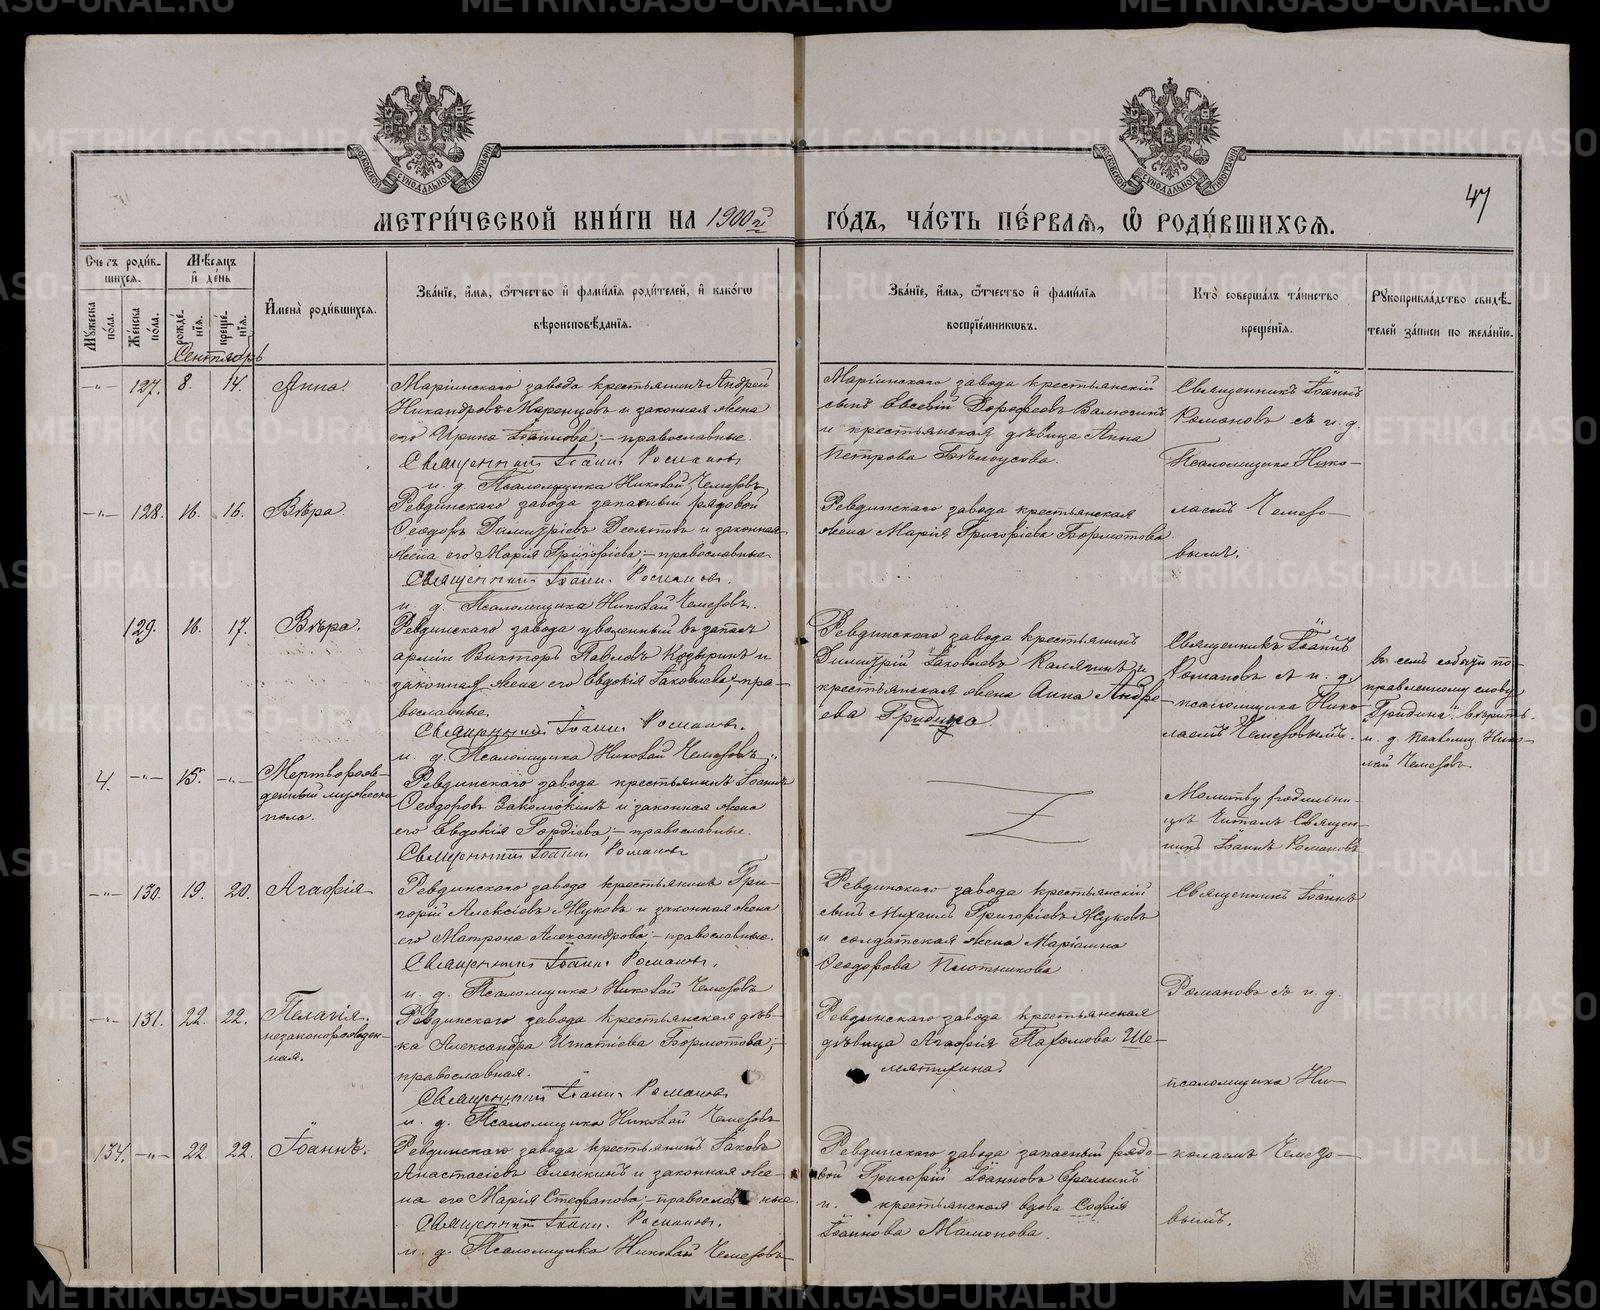 47
МЕТРИ́ЧЕСКОЙ КНИ́ГИ НА 1900 г. ГО́ДЪ, ЧА́СТЬ ПЕ́РВАЯ, Ѡ РОДИ́ВШИХСЯ.
Сче́тъ роди́в-
шихся.
Мѣ́сяцъ
и҆ де́нь
Му́жеска
по́ла.
Же́нска
по́ла.
рожде́-
нїѧ.
креще́-
нїѧ.
И҆мена̀ роди́вшихся.
Зва́нїе, и҆́мя, ѻ҆́тчество и҆ фами́лїѧ роди́телей, и҆ како́гѡ
вѣроисповѣ́данїѧ.
Зва́нїе, и҆́мя, ѻ҆́тчество и҆ фами́лїѧ
воспрїе́мникѡвъ.
Кто̀ соверша́лъ та́инство
креще́нїѧ.
Рꙋкоприкла́дство свидѣ́-
телей за́писи по жела́нїю.
Сентябрь
-„- 127. 8. 14. Анна.
Маріинскаго завода крестьянинъ Андрей
Никандровъ Маренцовъ и законная жена
его Ирина Іоаннова; – православные.
Священникъ Іоаннъ Романовъ
и. д. Псаломщика Николай Чемезовъ
Маріинскаго завода крестьянскій
сынъ Евсевій Дорофеевъ Валюгинъ
и крестьянская дѣвица Анна
Петрова Бѣлоусова.
Священникъ Іоаннъ
Романовъ съ и. д.
Псаломщика Нико-
-„- 128. 16. 16. Вѣра.
Ревдинскаго завода запасный рядовой
Ѳеодоръ Димитріевъ Десятовъ и законная
жена его Марія Григорьева; – православные
Священникъ Іоаннъ Романовъ.
и. д. Псаломщика Николай Чемезовъ.
Ревдинскаго завода крестьянская
жена Марія Григоріева Бормотова
лаемъ Чемезо-
вымъ.
129. 16. 17. Вѣра.
Ревдинскаго завода уволенный въ запасъ
арміи Викторъ Павловъ Козыринъ и
законная жена его Евдокія Іаковлева; – пра-
вославные.
Священникъ Іоаннъ Романовъ.
и. д. Псаломщика Николай Чемезовъ
Ревдинскаго завода крестьянинъ
Димитрій Іаковлевъ Калягинъ и
крестьянская жена Анна Андре-
ева Гридина.
Священникъ Іоаннъ
Романовъ и и. д.
псаломщика Нико-
лаемъ Чемезовымъ.
въ семъ событіи по-
правленному слову
„Гридина“ вѣрить.
и. д. псаломщ. Нико-
лай Чемезовъ
4. -„- 15. -„- Мертворож-
денный мужеска
пола.
Ревдинскаго завода крестьянинъ Іоаннъ
Ѳеодоровъ Закоможинъ и законная жена
его Евдокія Гордіева; – православные.
Священникъ Іоаннъ Романовъ
Молитву родильни-
цѣ читалъ Священ-
никъ Іоаннъ Романовъ
-„- 130. 19. 20. Агафія
Ревдинскаго завода крестьянинъ Гри-
горій Алексіевъ Жуковъ и законная жена
его Матрона Александрова; – православные.
Священникъ Іоаннъ Романовъ.
и. д. Псаломщика Николай Чемезовъ
Ревдинскаго завода крестьянскій
сынъ Михаилъ Григоріевъ Жуковъ
и солдатская жена Маріамна
Ѳеодорова Плотникова
Священникъ Іоаннъ
Романовъ съ и. д.
-„- 131. 22. 22. Пелагія.
незаконорожден-
ная.
Ревдинскаго завода крестьянская дѣв-
ка Александра Игнатіева Бормотова; –
православная.
Священникъ Іоаннъ Романовъ
и. д. Псаломщика Николай Чемезовъ
Ревдинскаго завода крестьянская
дѣвица Агафія Пахомова Ше-
мятихина.
псаломщика Ни-
134. -„- 22. 22. Іоаннъ.
Ревдинскаго завода крестьянинъ Іаковъ
Анастасіевъ Еленкинъ и законная же-
на его Марія Стефанова; – православные.
Священникъ Іоаннъ Романовъ.
и. д. Псаломщика Николай Чемезовъ
Ревдинскаго завода запасный рядо-
вой Григорій Іоанновъ Ереминъ
и крестьянская вдова Софія
Іоаннова Мамонова.
колаемъ Чемезо-
вымъ.
METRIKI.GASO-URAL.RU